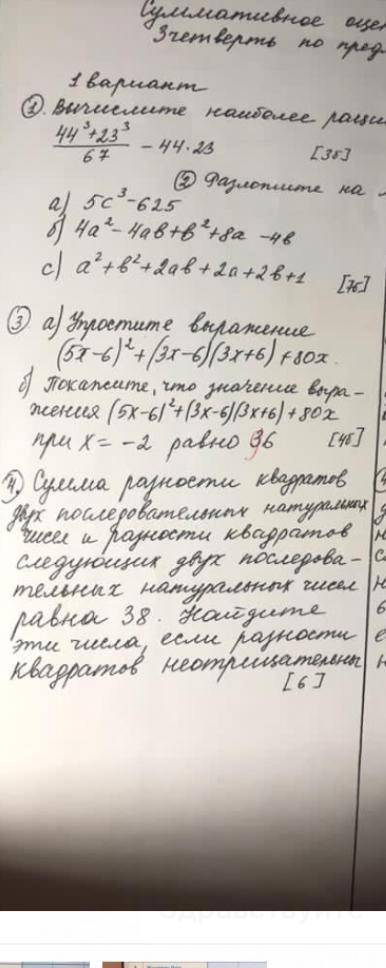 Суммативное
3 четверть по
1 вариант
① Вычислите наиболее
44³+23³/67 - 44·23 [3б]
② Разложите на
а) 5c³-625
б) 4a²-4ab+b²+8a-4b
с) a²+b²+2ab+2a+2b+1
[7б]
③ а) Упростите выражение
(5x-6)²+(3x-6)(3x+6)+80x.
б) Покажите, что значение выра-
жения (5x-6)²+(3x-6)(3x+6)+80x
при x=-2 равно 36 [4б]
④. Сумма разности квадратов
двух последовательных натуральных
чисел и разности квадратов
следующих двух последова-
тельных натуральных чисел
равна 38. Найдите
эти числа, если разности
квадратов неотрицательны
[6]
Здравствуйте